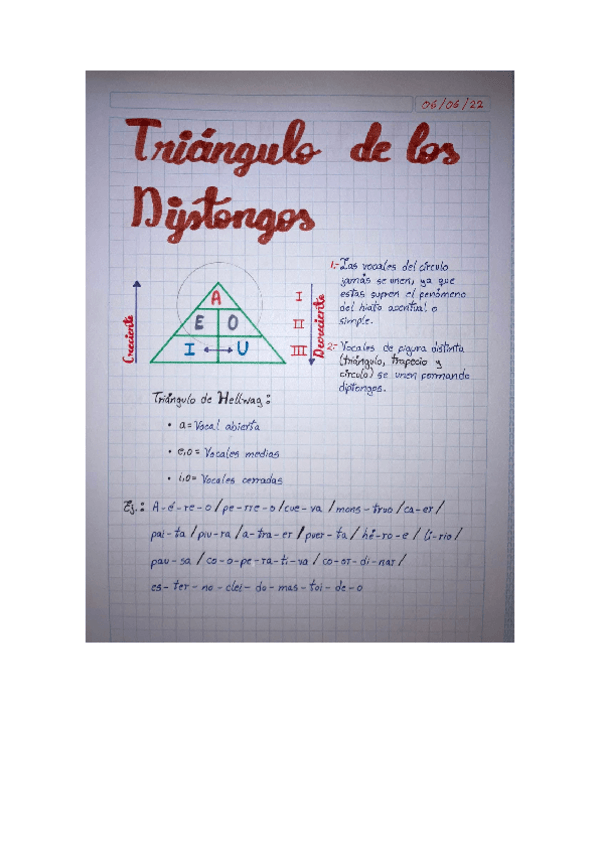 06/06/22
Triángulo de los
Diptongos
Creciente
A
E O
I U
I
II
III
Decreciente
1.- Las vocales del círculo
jamás se unen, ya que
estas supren el fenómeno
del hiato acentual o
simple.
2.- Vocales de figura distinta
(triángulo, trapecio y
círculo) se unen formando
diptongos.
Triángulo de Hellwag:
• a = Vocal abierta
• e,o = Vocales medias
• i,o = Vocales cerradas
Ej.: A-é-re-o / pe-rre-o / cue-va / mons-truo / ca-er /
pai-ta / piu-ra / a-tra-er / puer-ta / hé-ro-e / li-rio /
pau-sa / co-o-pe-ra-ti-va / co-or-di-nar /
es-ter-no-clei-do-mas-toi-de-o